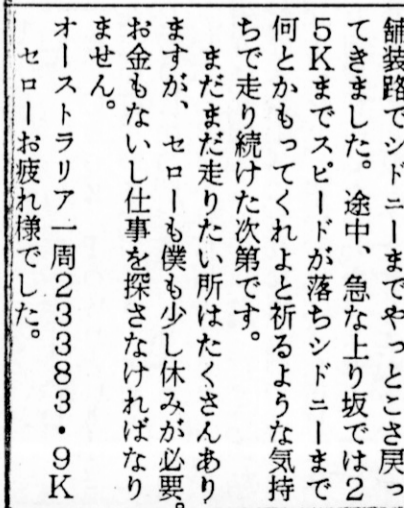 舗装路でシドニーまでやっとこさ戻っ
てきました。途中、急な上り坂では2
5Kまでスピードが落ちシドニーまで
何とかもってくれよと祈るような気持
ちで走り続けた次第です。
まだまだ走りたい所はたくさんあり
ますが、セローも僕も少し休みが必要。
お金もないし仕事を探さなければなり
ません。
オーストラリア一周23383・9K
セローお疲れ様でした。